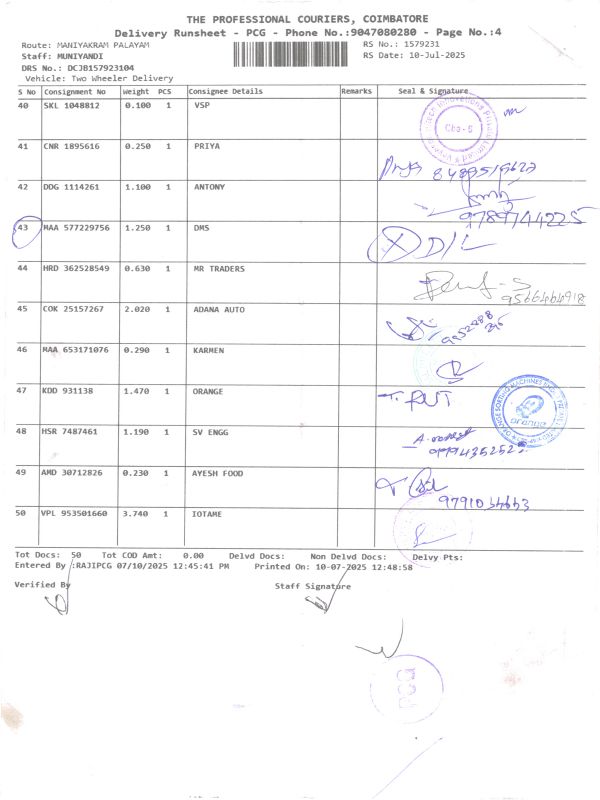 THE PROFESSIONAL COURIERS, COIMBATORE
Delivery Runsheet - PCG - Phone No.:9047080280 - Page No.:4
Route: MANIYAKRAM PALAYAM RS No.: 1579231
Staff: MUNIYANDI RS Date: 10-Jul-2025
DRS No.: DCJB157923104
Vehicle: Two Wheeler Delivery
S No Consignment No Weight PCS Consignee Details Remarks Seal & Signature
40 SKL 1048812 0.100 1 VSP
Cbe-5
41 CNR 1895616 0.250 1 PRIYA
42 DDG 1114261 1.100 1 ANTONY
9789744225
43 MAA 577229756 1.250 1 DMS D/L
44 HRD 362528549 0.630 1 MR TRADERS
45 COK 25157267 2.020 1 ADANA AUTO
46 MAA 653171076 0.290 1 KARMEN
47 KDD 931138 1.470 1 ORANGE
ORANGE SORTING MACHINES
48 HSR 7487461 1.190 1 SV ENGG
49 AMD 30712826 0.230 1 AYESH FOOD
50 VPL 953501660 3.740 1 IOTAME
Tot Docs: 50 Tot COD Amt: 0.00 Delvd Docs: Non Delvd Docs: Delvy Pts:
Entered By :RAJIPCG 07/10/2025 12:45:41 PM Printed On: 10-07-2025 12:48:58
Verified By Staff Signature
PCG